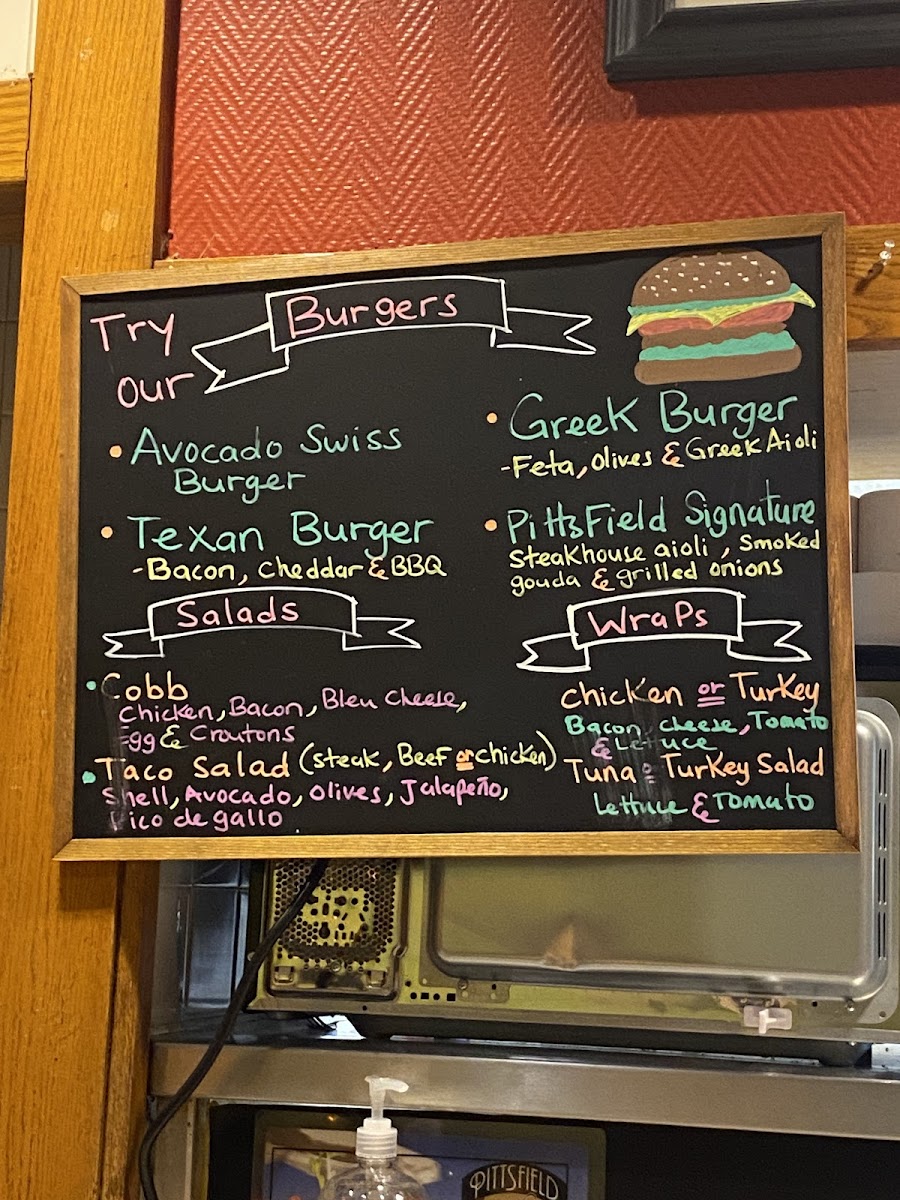 Try
our
Burgers
• Avocado Swiss
Burger
• Texan Burger
-Bacon, cheddar & BBQ
• Greek Burger
-Feta, olives & Greek Aioli
• PittsField Signature
Steakhouse aioli, Smoked
gouda & grilled onions
Salads
• Cobb
Chicken, Bacon, Bleu Cheese,
Egg & Croutons
• Taco Salad (steak, Beef or chicken)
Shell, Avocado, olives, Jalapeño,
Pico de gallo
Wraps
Chicken or Turkey
Bacon, cheese, Tomato
& Lettuce
Tuna or Turkey Salad
Lettuce & Tomato
PITTSFIELD